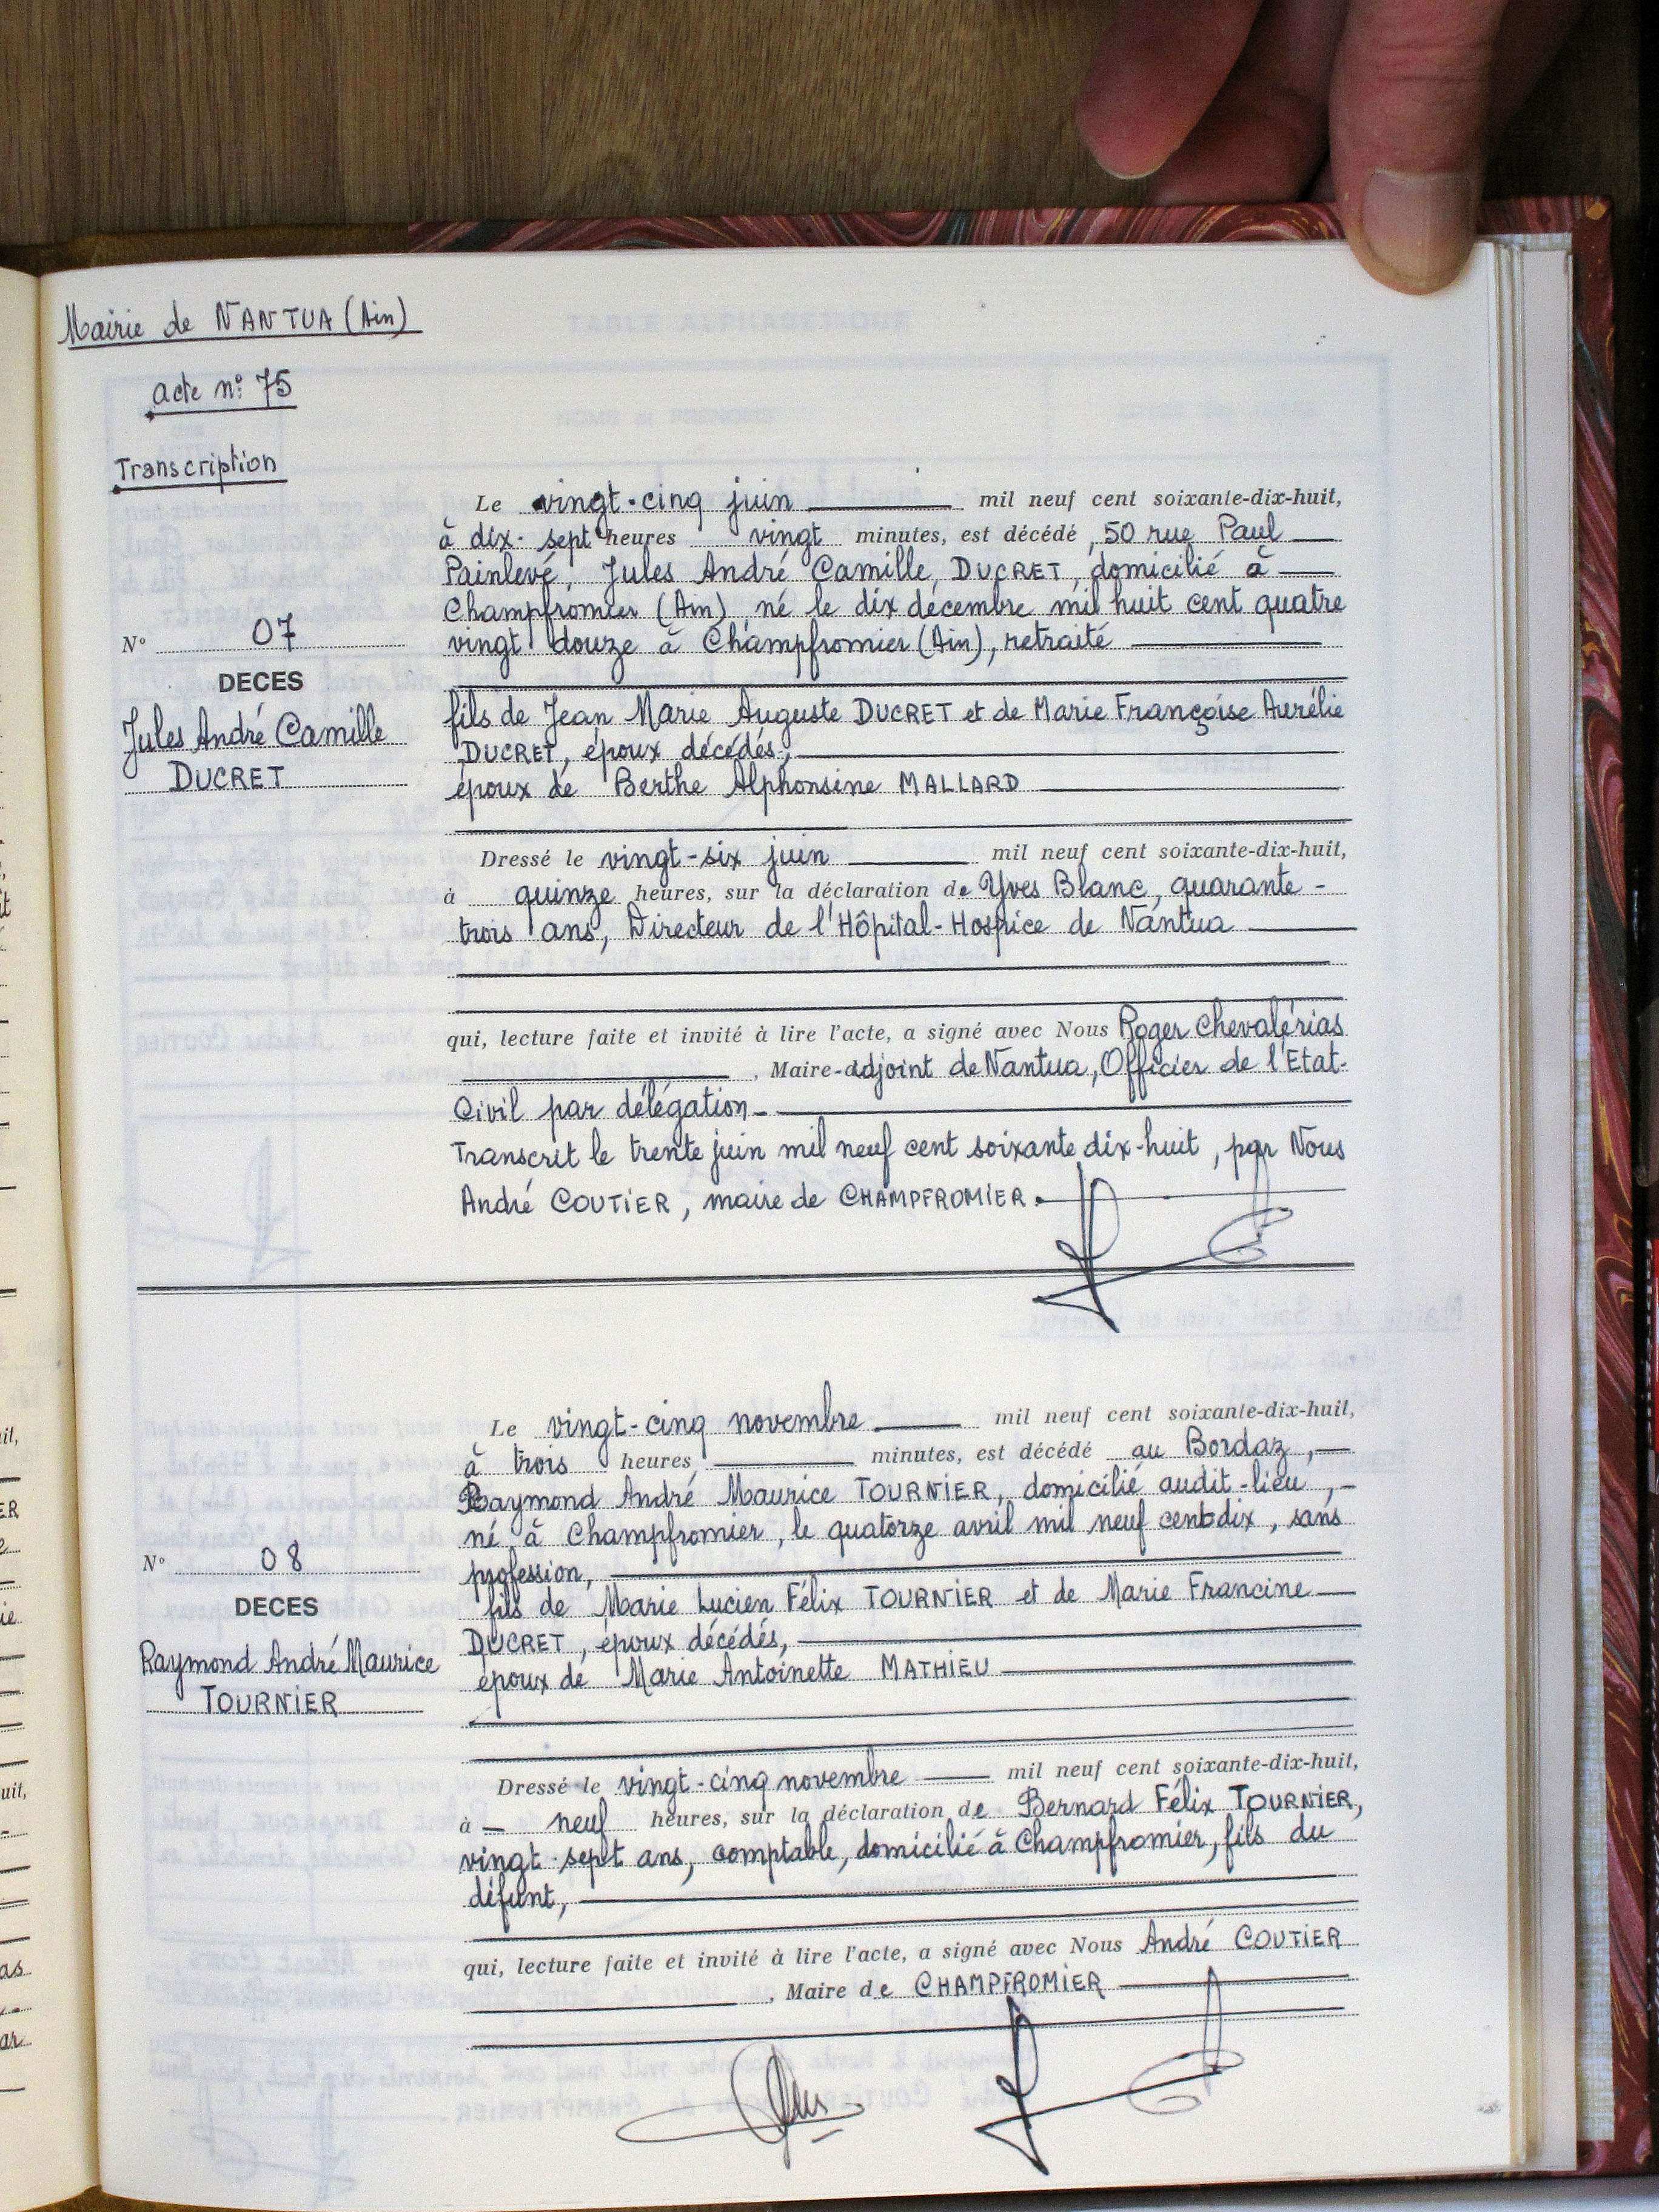 Mairie de NANTUA (Ain)
acte n° 75
Transcription
Le vingt-cinq juin mil neuf cent soixante-dix-huit,
à dix-sept heures vingt minutes, est décédé, 50 rue Paul
Painlevé, Jules André Camille, DUCRET, domicilié à
Champfromier (Ain), né le dix décembre mil huit cent quatre
vingt douze à Champfromier (Ain), retraité
N° 07
DECES
Jules André Camille
DUCRET
fils de Jean Marie Auguste DUCRET et de Marie Françoise Aurélie
DUCRET, époux décédés,
époux de Berthe Alphonsine MALLARD
Dressé le vingt-six juin mil neuf cent soixante-dix-huit,
à quinze heures, sur la déclaration de Yves Blanc, quarante-
trois ans, Directeur de l'Hôpital-Hospice de Nantua
qui, lecture faite et invité à lire l'acte, a signé avec Nous Roger Chevalérias
, Maire-adjoint de Nantua, Officier de l'Etat-
Civil par délégation.
Transcrit le trente juin mil neuf cent soixante dix-huit, par Nous
André COUTIER, maire de CHAMPFROMIER.
Le vingt-cinq novembre mil neuf cent soixante-dix-huit,
à trois heures minutes, est décédé au Bordaz,
Raymond André Maurice TOURNIER, domicilié audit-lieu,
né à Champfromier, le quatorze avril mil neuf cent dix, sans
profession,
N° 08
DECES
Raymond André Maurice
TOURNIER
fils de Marie Lucien Félix TOURNIER et de Marie Francine
DUCRET, époux décédés,
époux de Marie Antoinette MATHIEU
Dressé le vingt-cinq novembre mil neuf cent soixante-dix-huit,
à neuf heures, sur la déclaration de Bernard Félix TOURNIER,
vingt-sept ans, comptable, domicilié à Champfromier, fils du
défunt,
qui, lecture faite et invité à lire l'acte, a signé avec Nous André COUTIER
, Maire de CHAMPFROMIER